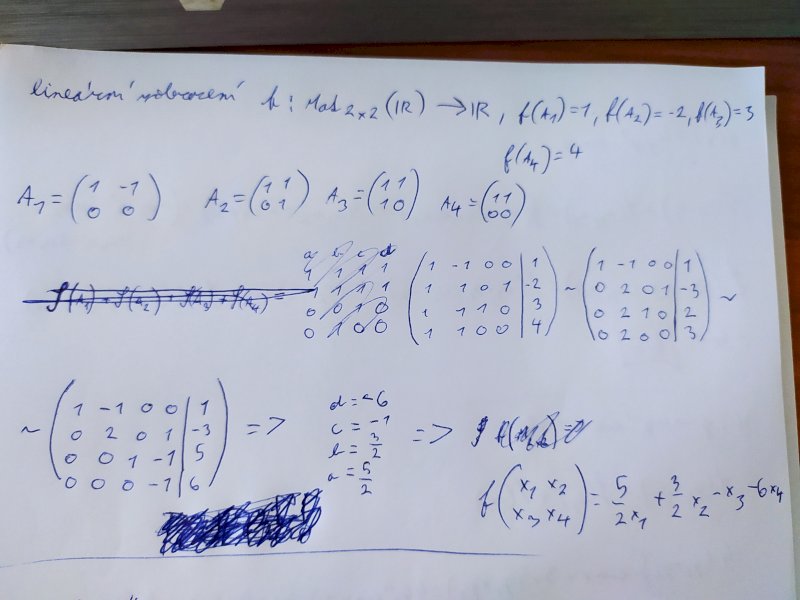 lineární zobrazení f : Mat₂ₓ₂(ℝ) → ℝ, f(A₁)=1, f(A₂)=-2, f(A₃)=3
f(A₄)=4
A₁ = (1 -1 / 0 0) A₂ = (1 1 / 0 1) A₃ = (1 1 / 1 0) A₄ = (1 1 / 0 0)
f(A₁) + f(A₂) + f(A₃) + f(A₄) =
a b c d
1 1 1 1
-1 1 1 1
0 0 1 0
0 1 0 0
( 1 -1 0 0 | 1
1 1 0 1 | -2
1 1 1 0 | 3
1 1 0 0 | 4 ) ~
( 1 -1 0 0 | 1
0 2 0 1 | -3
0 2 1 0 | 2
0 2 0 0 | 3 ) ~
~ ( 1 -1 0 0 | 1
0 2 0 1 | -3
0 0 1 -1 | 5
0 0 0 -1 | 6 ) =>
d = -6
c = -1
b = 3/2
a = 5/2
=>
f(x₁ x₂ / x₃ x₄) = 5/2 x₁ + 3/2 x₂ - x₃ - 6x₄